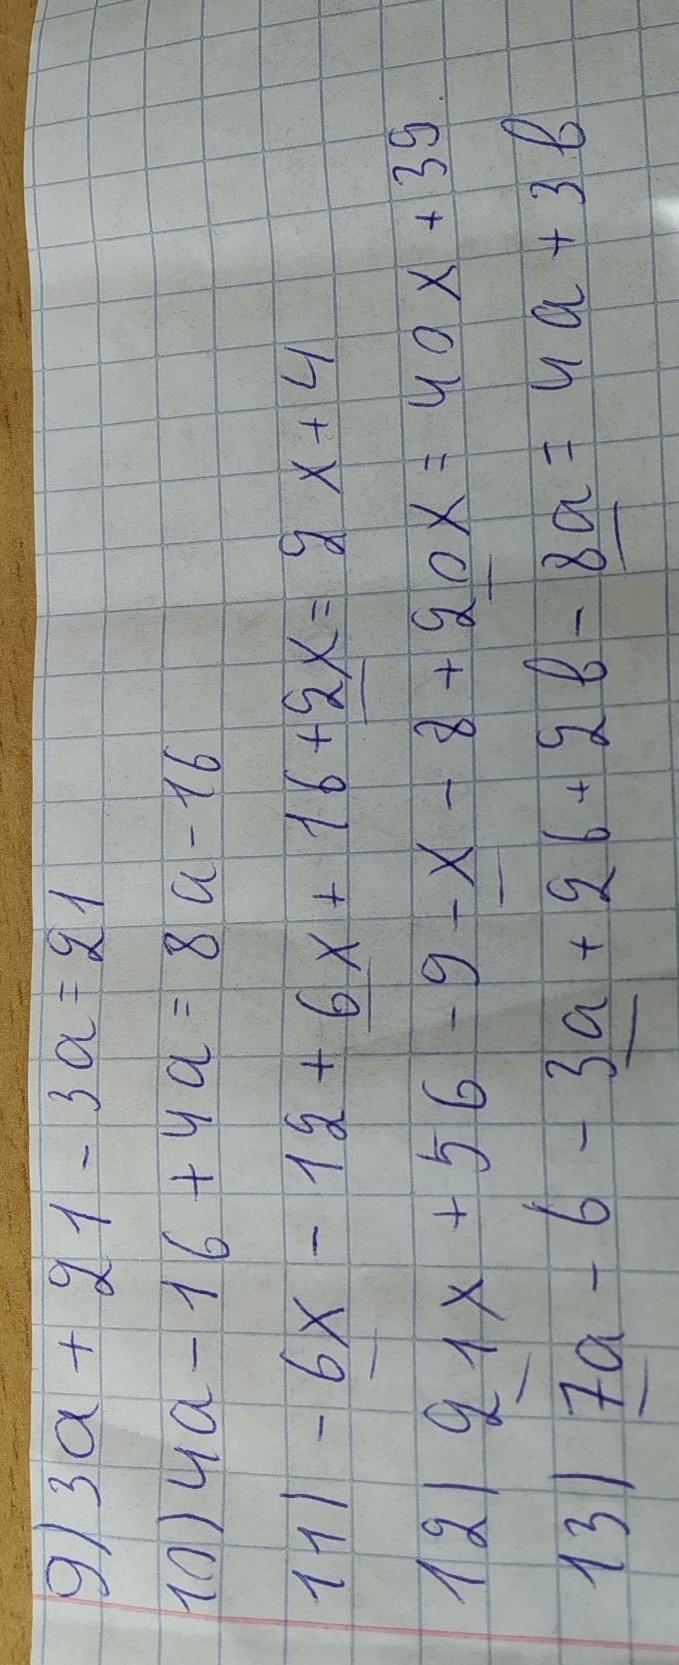 9) 3a + 21 - 3a = 21
10) 4a - 16 + 4a = 8a - 16
11) - 6x - 12 + 6x + 16 + 2x = 2x + 4
12) 21x + 56 - 9 - x - 8 + 20x = 40x + 39
13) 7a - b - 3a + 2b + 2b - 8a = 4a + 3b